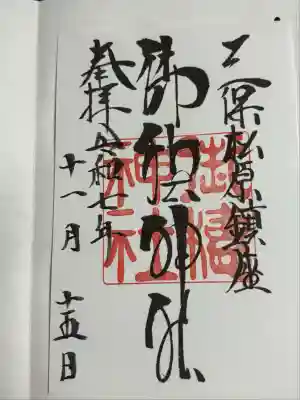 三保松原鎮座
御穂神社
奉拝 令和七年
十一月 十五日
御穂
神社